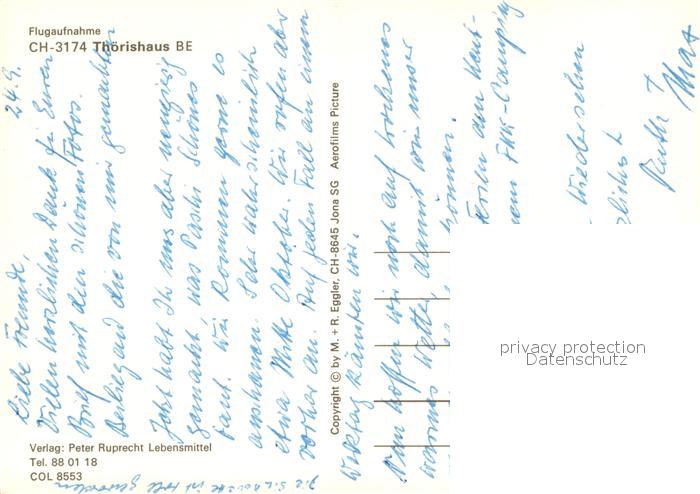 Flugaufnahme
CH-3174 Thörishaus BE
24.9.
Liebe Freunde,
Vielen herzlichen Dank für Euren
Brief mit den schönen Fotos.
die von mir gemachten
Jetzt habt Ihr uns aber neugierig
gemacht, was Paski Schönes
baut. Wir kommen gerne es
anschauen. Sehr wahrscheinlich
etwa Mitte Oktober. Wir rufen aber
vorher an. Auf jeden Fall an einem
Werktag
Nun hoffen wir noch auf trockenes
warmes Wetter, damit wir unser
können.
FKK-Camping
Wiedersehen
Ruth +
Max
Die ist toll geworden
Copyright © by M. + R. Eggler, CH-8645 Jona SG Aerofilms Picture
privacy protection
Datenschutz
Verlag: Peter Ruprecht Lebensmittel
Tel. 88 01 18
COL 8553